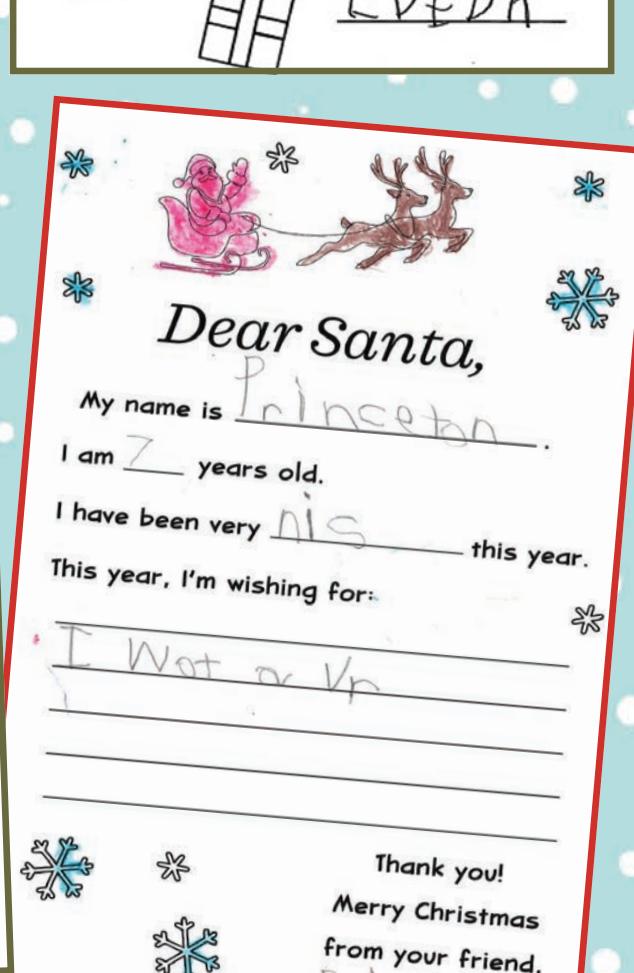 Dear Santa,
My name is Princeton.
I am 7 years old.
I have been very nis this year.
This year, I'm wishing for:
I Wot a Vr
Thank you!
Merry Christmas
from your friend,